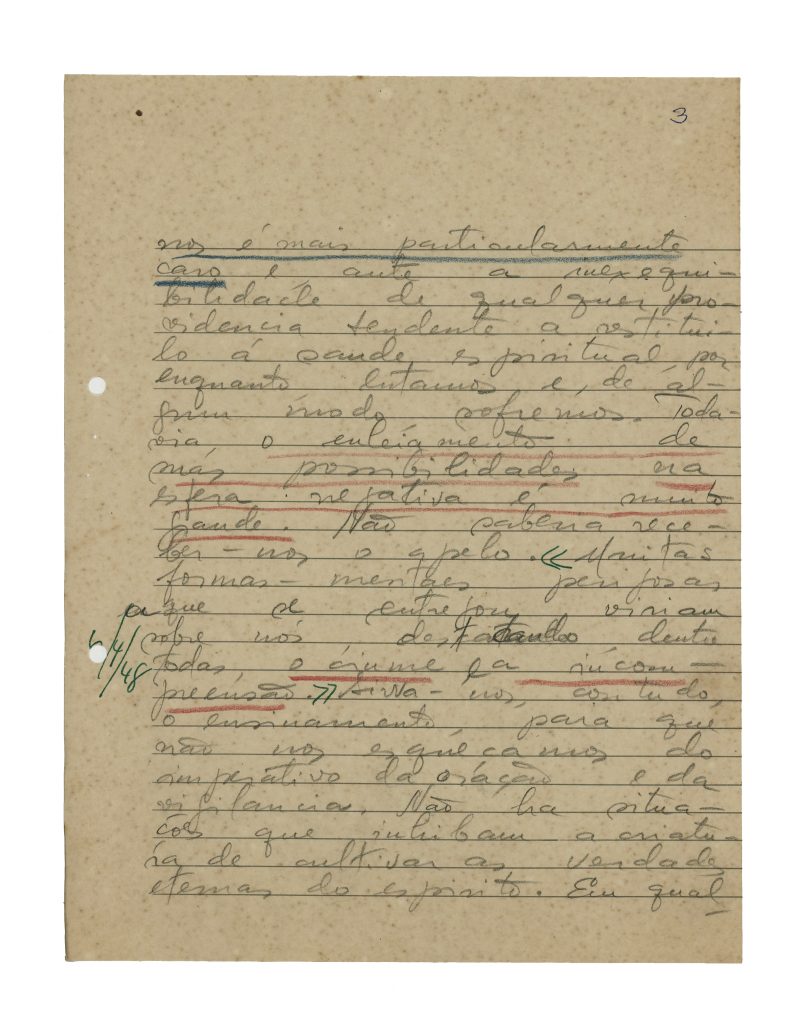 3
nos é mais particularmente
caro e ante a inexequi-
bilidade de qualquer pro-
videncia tendente a restitui-
lo á saude espiritual por
enquanto lutamos, e, de al-
gum modo sofremos. Toda-
via o enleiamento de
más possibilidades na
esfera negativa é muito
grande. Não saberia rece-
ber-nos o apelo. « Muitas
formas-mentaes perigosas
a que se entregou viriam
sobre nós destacando dentre
5/4/48
todas o ciume e a incom-
preensão. » Sirva-nos, contudo,
o ensinamento para que
não nos esqueçamos do
imperativo da oração e da
vigilancia. Não ha situa-
ções que inhibam a criatu-
ra de cultivar as verdades
eternas do espirito. Em qual-